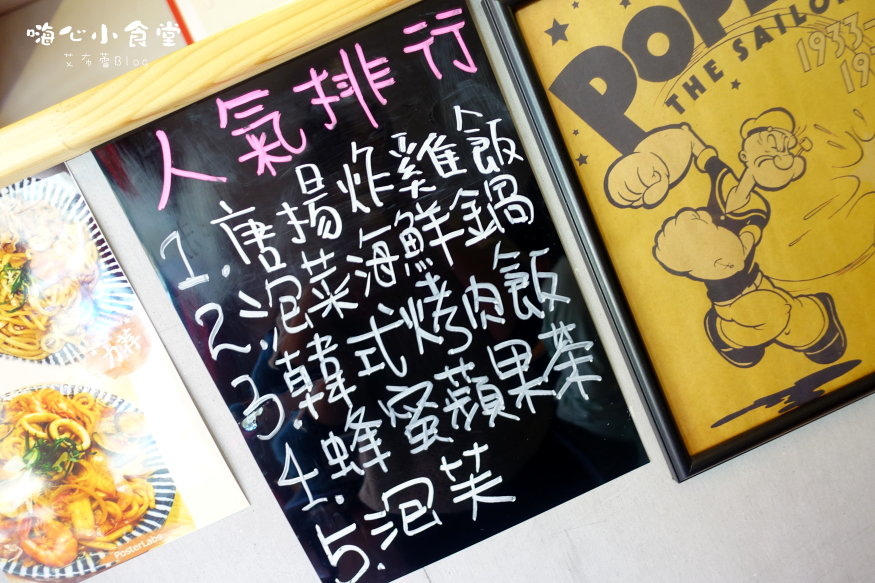 嗨心小食堂
艾布蕾Blog
人氣排行
1.唐揚炸雞飯
2.泡菜海鮮鍋
3.韓式烤肉飯
4.蜂蜜蘋果茶
5.泡芙
POPE
THE SAILOR
1933-
PosterLabs